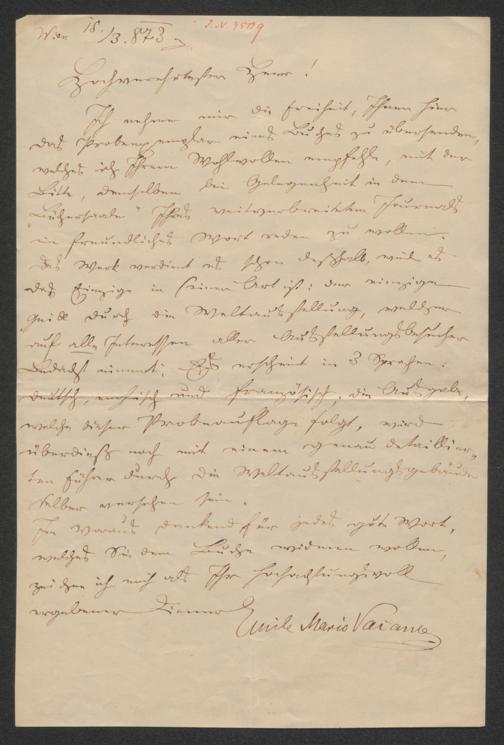 Wien 18./3. 873
I.N. 9509
Hochverehrtester Herr!
Ich nehme mir die Freiheit, Ihnen hier
das Probeexemplar eines Buches zu übersenden,
welches ich Ihrem Wohlwollen empfehle, mit der
Bitte, demselben bei Gelegenheit in dem
"Büchersaale" Ihres weitverbreiteten Journals
ein freundliches Wort reden zu wollen.
Das Werk verdient es schon deßhalb, weil es
das Einzige in seiner Art ist: der einzige
Guide durch die Weltausstellung, welcher
auf alle Interessen aller Ausstellungsbesucher
Bedacht nimmt. Es erscheint in 3 Sprachen:
deutsch, englisch und französisch; die Ausgabe,
welche dieser Probeauflage folgt, wird
überdieß noch mit einem genau detaillir-
ten Führer durch die Weltausstellungsgebäude
selber versehen sein.
Im Voraus dankend für jedes gute Wort,
welches Sie dem Buche widmen wollen,
zeichne ich mich als Ihr hochachtungsvoll
ergebener Diener
Emile Mario Vacano